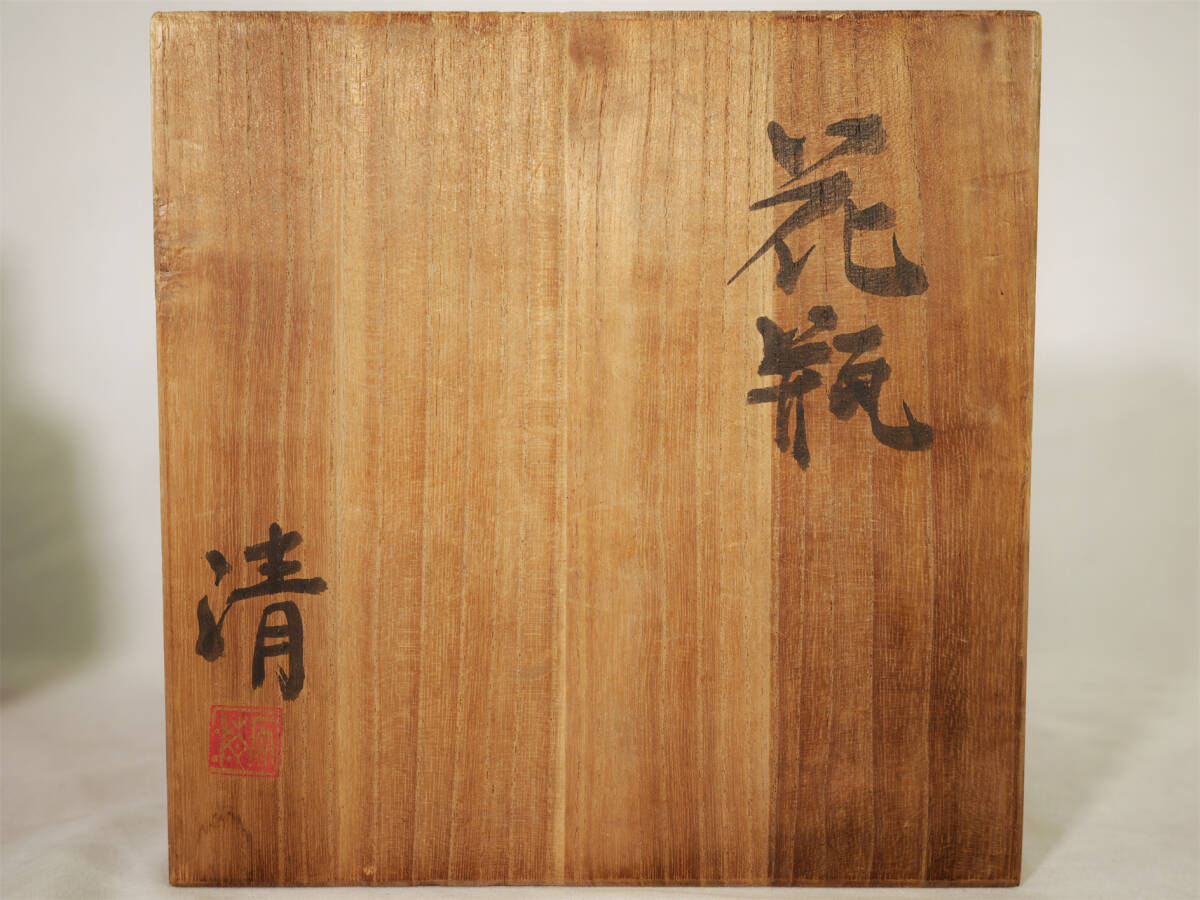 花瓶
清